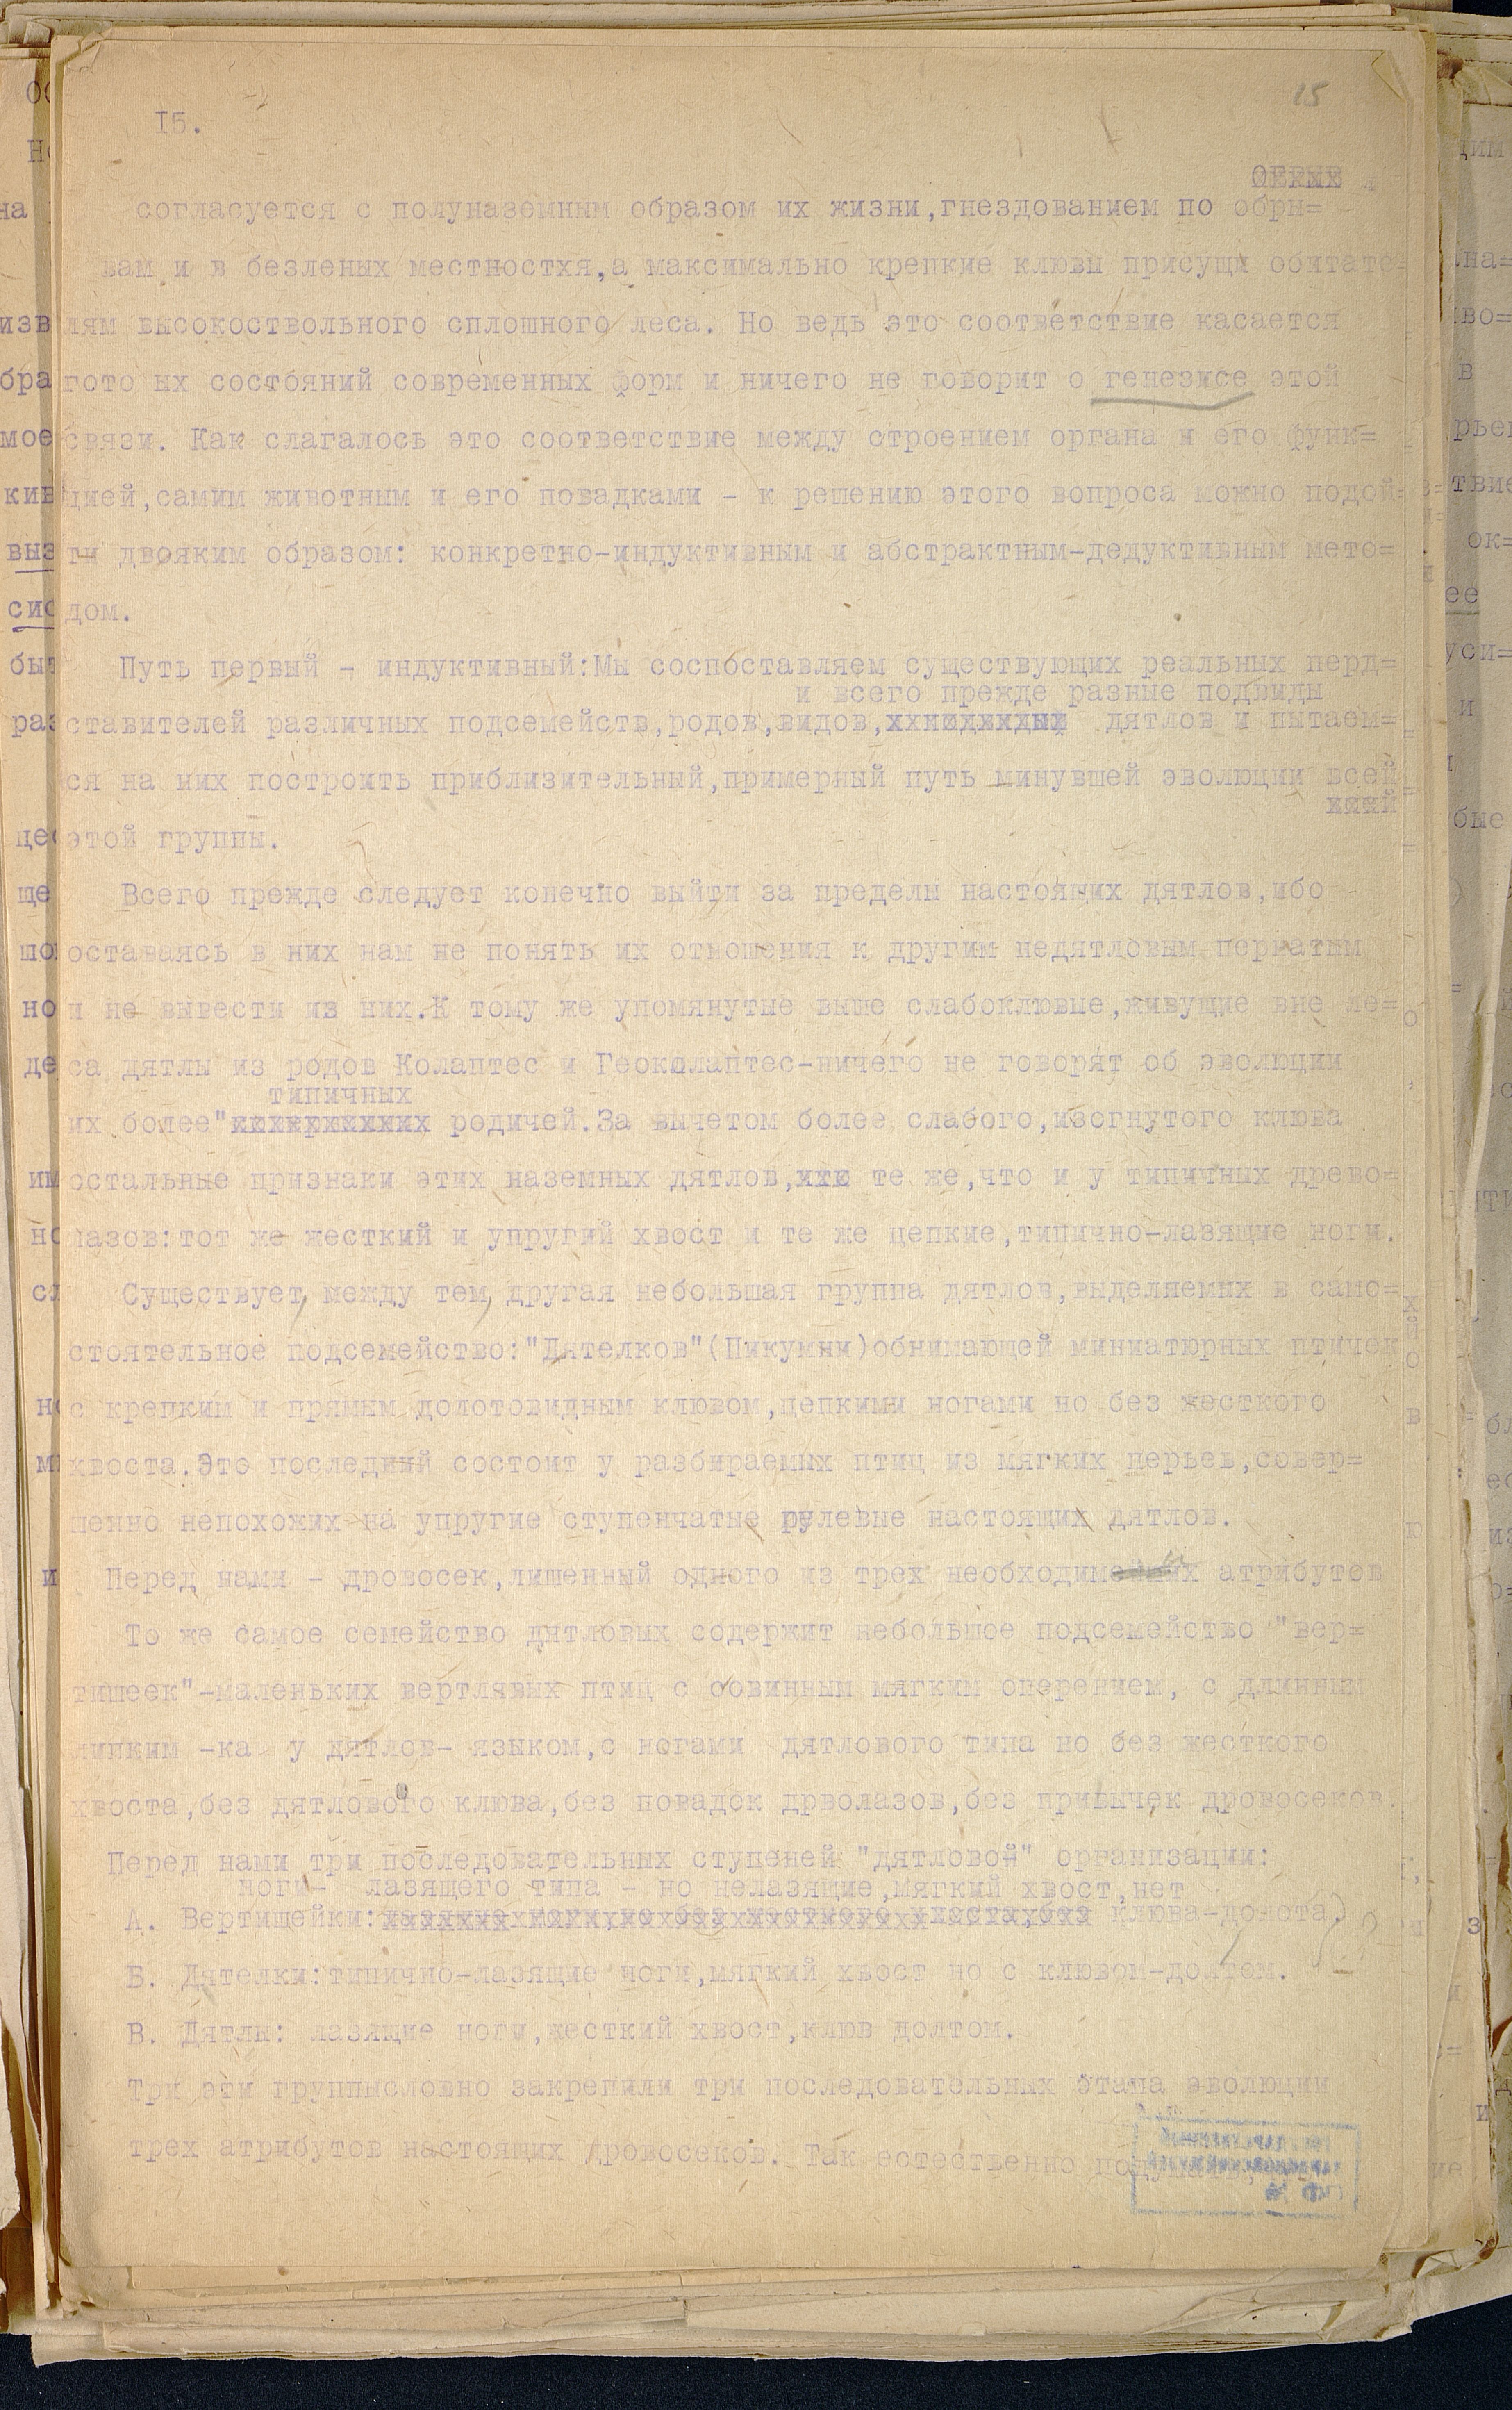 15
I5.
согласуется с полуназемным образом их жизни,гнездованием по обры=
вам и в безленых местностхя,а максимально крепкие клювы присущи обитате=
лям высокоствольного сплошного леса. Но ведь это соответствие касается
гото ых состояний современных форм и ничего не говорит о генезисе этой
связи. Как слагалось это соответствие между строением органа и его функ=
цией,самим животным и его повадками - к решению этого вопроса можно подой=
ти двояким образом: конкретно-индуктивным и абстрактным-дедуктивным мето=
дом.
Путь первый - индуктивный:Мы соспоставляем существующих реальных перд=
и всего прежде разные подвиды
ставителей различных подсемейств,родов,видов, дятлов и пытаем=
ся на них построить приблизительный,примерный путь минувшей эволюции всей
этой группы.
Всего прежде следует конечно выйти за пределы настоящих дятлов,ибо
оставаясь в них нам не понять их отношения к другим недятловым пернатым
и не вывести из них.К тому же упомянутые выше слабоклювые,живущие вне ле=
са дятлы из родов Колаптес и Геоколаптес-ничего не говорят об эволюции
типичных
их более" родичей.За вычетом более слабого,изогнутого клюва
остальные признаки этих наземных дятлов, те же,что и у типичных древо=
лазов:тот же жесткий и упругий хвост и те же цепкие,типично-лазящие ноги.
Существует, между тем, другая небольшая группа дятлов,выделяемых в само=
стоятельное подсемейство:"Дятелков"(Пикумни)обнимающей миниатюрных птичек
с крепким и прямым долотовидным клювом,цепкими ногами но без жесткого
хвоста.Это последний состоит у разбираемых птиц из мягких перьев,совер=
шенно непохожих на упругие ступенчатые рулевые настоящих дятлов.
Перед нами - дровосек,лишенный одного из трех необходимых атрибутов
То же самое семейство дятловых содержит небольшое подсемейство "вер=
тишеек"-маленьких вертлявых птиц с совинным мягким оперением, с длинным
липким -ка у дятлов- языком,с ногами дятлового типа но без жесткого
хвоста,без дятлового клюва,без повадок дрволазов,без привычек дровосеков.
Перед нами три последовательных ступеней "дятловой" организации:
ноги- лазящего типа - но нелазящие,мягкий хвост,нет
А. Вертишейки: клюва-долота.
Б. Дятелки:типично-лазящие ноги,мягкий хвост но с клювом-долтом.
В. Дятлы: лазящие ноги,жесткий хвост,клюв долтом.
Три эти группысловно закрепили три последовательных этапа эволюции
трех атрибутов настоящих дровосеков. Так естественно подумать,